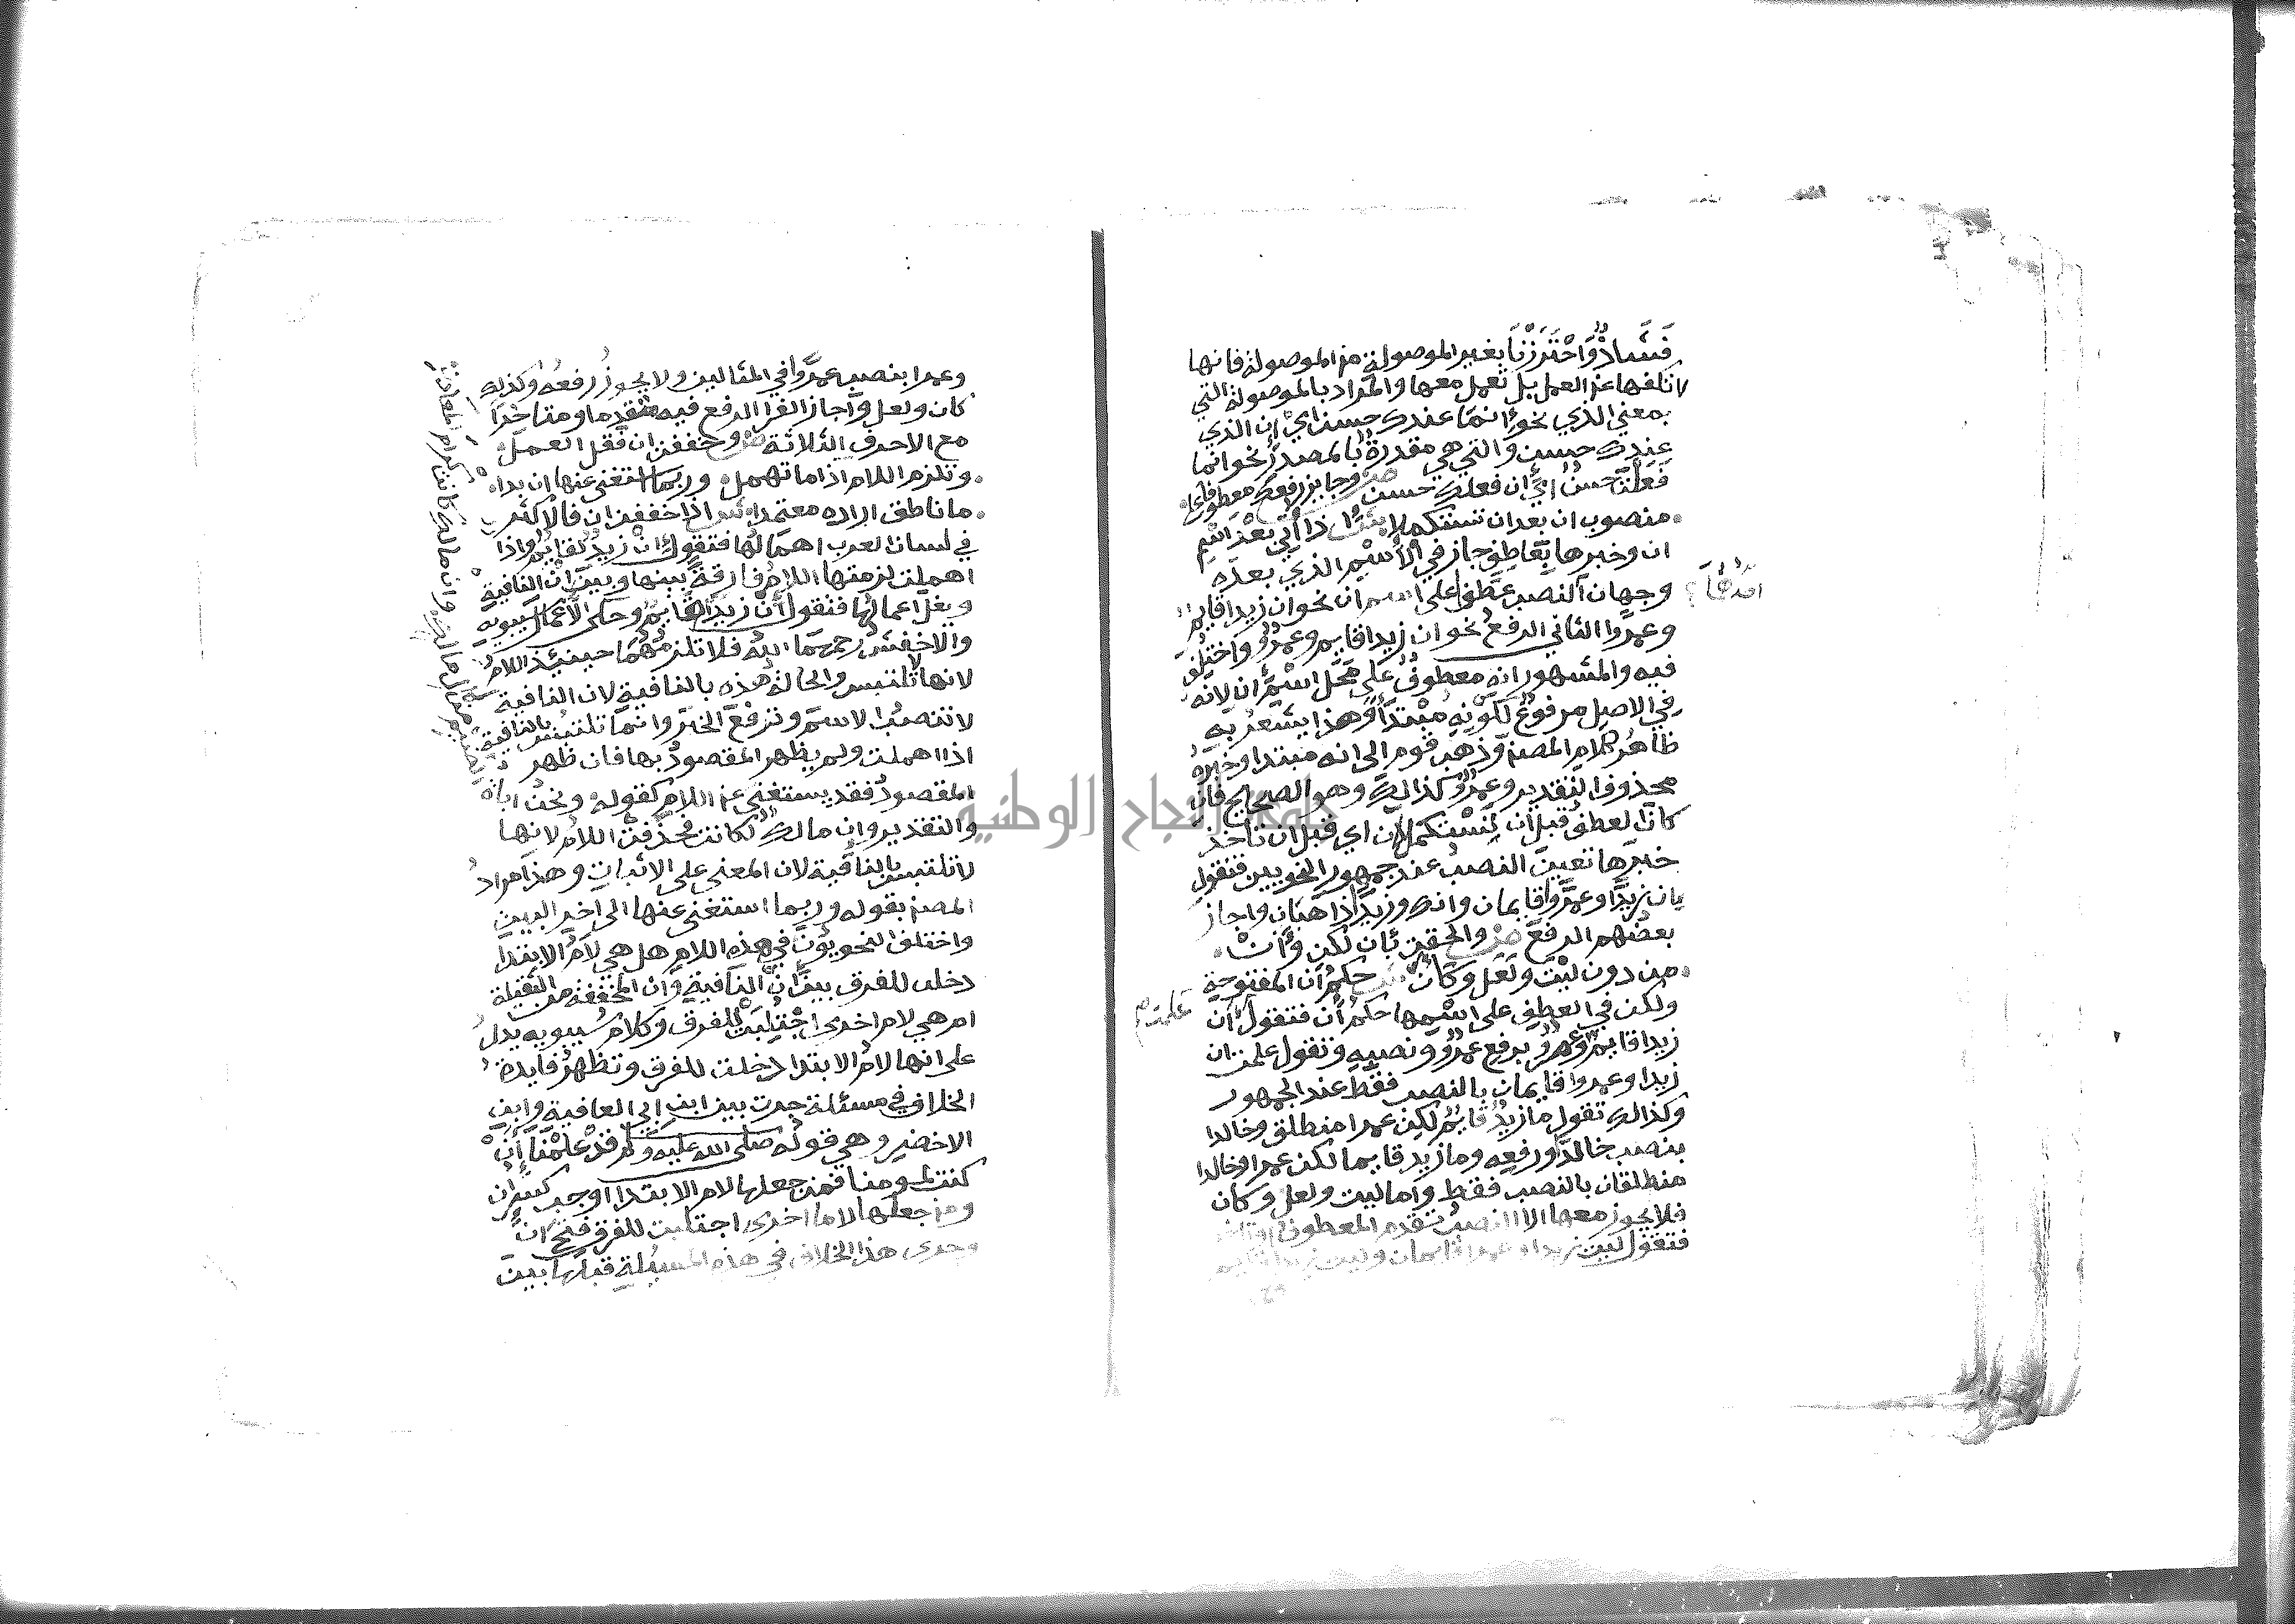 فشاذ واحترزنا بغير الموصولة من الموصولة فانها
لا تكفها عن العمل بل تعمل معها والمراد بالموصولة التي
بمعني الذي نحو انما عندك حسن اي ان الذي
عندك حسن والتي هي مقدرة بالمصدر نحو انما
فعلت حسن اي ان فعلك حسن ص وجايز رفعك معطوفا علي
منصوب ان بعد ان تستكملا ش اذا اتي بعد اسم
ان وخبرها بعاطف جاز في الاسم الذي بعده
وجهان النصب عطفا علي اسم ان نحو ان زيدا قايم
احدهما
وعمروا الثاني الرفع نحو ان زيدا قايم وعمرو واختلف
فيه والمشهور انه معطوف علي محل اسم ان لانه
في الاصل مرفوع لكونه مبتدا وهذا يشعر به
ظاهر كلام المصنف وذهب قوم الي انه مبتدا وخبره
محذوف التقدير وعمرو كذالك وهو الصحيح فان
كان العطف قبل ان تستكمل ان اي قبل ان تاخذ
خبرها تعين النصب عند جمهور النحويين فتقول
ان زيدا وعمروا قايمان وانك وزيدا ذاهبان واجاز
بعضهم الرفع ص والحقت بان لكن وان
من دون ليت ولعل وكان ش حكم ان المفتوحة
ولكن في العطف علي اسمها حكم ان فتقول ان
علمت
زيدا قايم وعمرو برفع عمرو ونصبه وتقول علمت ان
زيدا وعمروا قايمان بالنصب فقط عند الجمهور
وكذالك تقول ما زيد قايم لكن عمرا منطلق وخالدا
بنصب خالد ورفعه وما زيد قايما لكن عمرا وخالدا
منطلقان بالنصب فقط واما ليت ولعل وكان
فلا يجوز معها الا النصب تقدم المعطوف او تاخر
فتقول ليت زيدا وعمرا قايمان وليت زيدا قايم
وعمرا بنصب عمروا في المثالين ولا يجوز رفعه وكذلك
كان ولعل واجاز الفرا الرفع فيه متقدما ومتاخرا
مع الاحرف الثلاثة ص وخففت ان فقل العمل
وتلزم اللام اذا ما تهمل وربما استغني عنها ان بدا
ما ناطق اراده معتمدا ش اذا خففت ان فالاكثر
في لسان العرب اهمالها فتقول ان زيد لقايم واذا
اهملت لزمتها اللام فارقة بينها وبين ان النافية
ويقل اعمالها فتقول ان زيدا قايم وحكي الاعمال سيبويه
والاخفش رحمهما الله فلا تلزمهما حينئذ اللام
لانها لا تلتبس والحالة هذه بالنافية لان النافية
لا تنصب الاسم وترفع الخبر وانما تلتبس بالنافية
اذا اهملت ولم يظهر المقصود بها فان ظهر
المقصود فقد يستغني عن اللام كقوله ونحن اباة
والتقدير وان مالك لكانت فحذفت اللام لانها
لا تلتبس بالنافية لان المعني علي الاثبات وهذا مراد
المصنف بقوله وربما استغني عنها الي اخر البيت
واختلف النحويون في هذه اللام هل هي لام الابتدا
دخلت للفرق بين ان النافية وان المخففة من الثقيلة
ام هي لام اخري اجتلبت للفرق وكلام سيبويه يدل
علي انها لام الابتدا دخلت للفرق وتظهر فايدة
الخلاف في مسئلة جرت بين ابن ابي العافية وابن
الاخضر وهي قوله صلي الله عليه وسلم قد علمنا ان
كنت لمومنا فمن جعلها لام الابتدا اوجب كسر ان
ومن جعلها لاما اخري اجتلبت للفرق فتح ان
وجري هذا الخلاف في هذه المسئلة قبلها بين
الضيم من ال مالك وان مالك كانت كرام المعادن
جامعة النجاح الوطنية